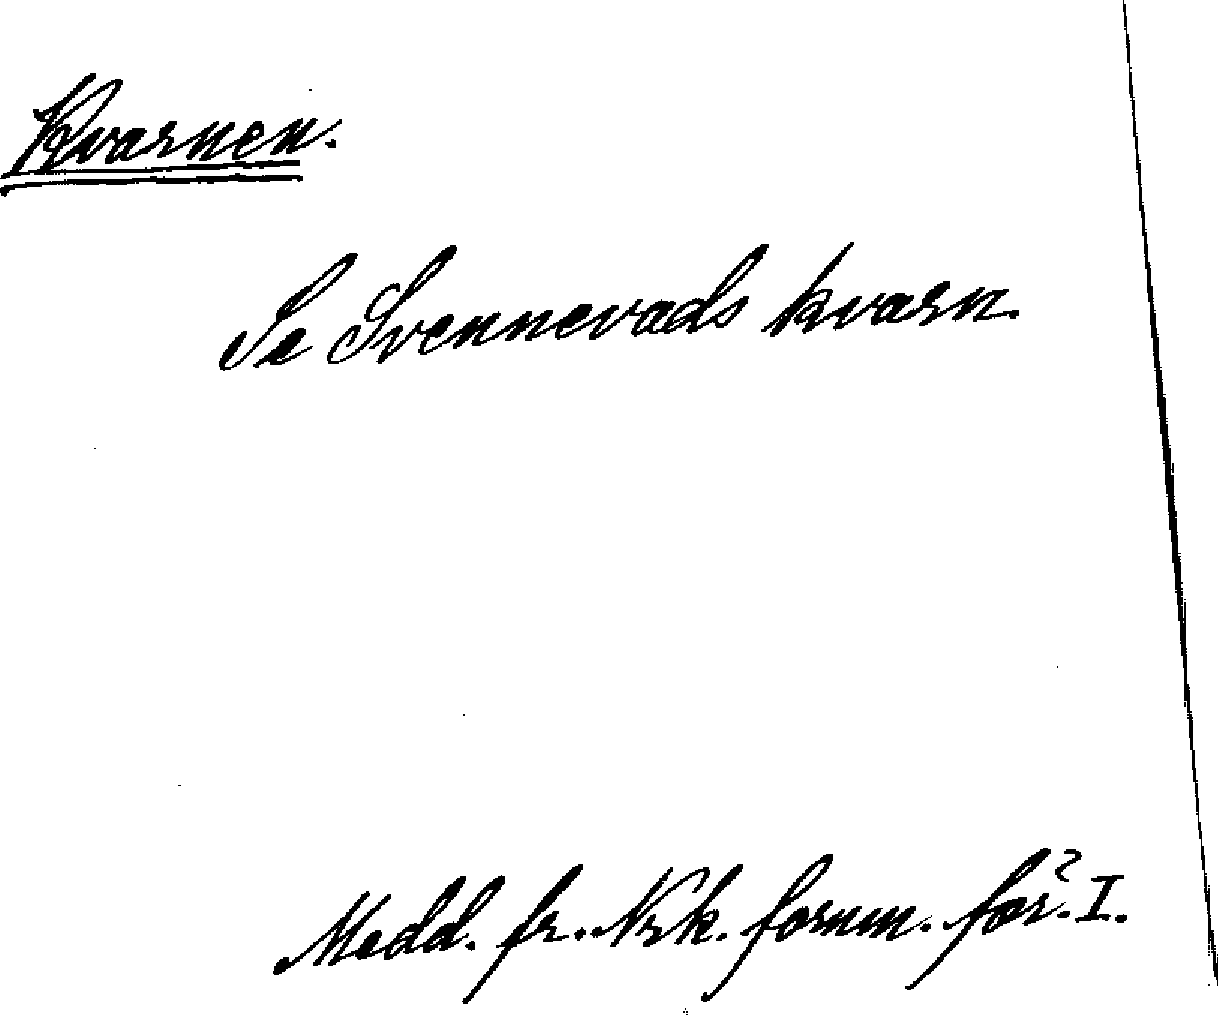 Kvarnen.
Se Svennevads kvarn.
Medd. fr. Nrk. fornm.för. I.